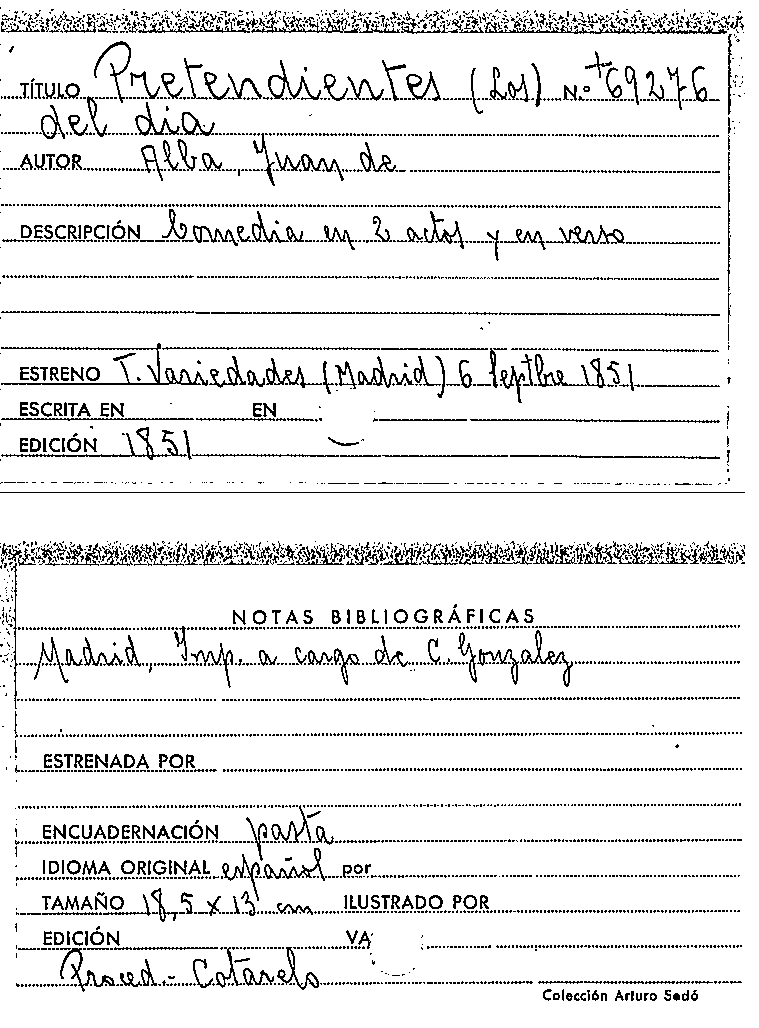 TÍTULO Pretendientes (Los) N.º +69276
del dia
AUTOR Alba, Juan de
DESCRIPCIÓN Comedia en 2 actos y en verso
ESTRENO T. Variedades (Madrid) 6 Septbre 1851
ESCRITA EN EN
EDICIÓN 1851
NOTAS BIBLIOGRÁFICAS
Madrid, Imp. a cargo de C. Gonzalez
ESTRENADA POR
ENCUADERNACIÓN pasta
IDIOMA ORIGINAL español por
TAMAÑO 18,5 x 13 cm ILUSTRADO POR
EDICIÓN VA
Proced.- Cotarelo
Colección Arturo Sedó